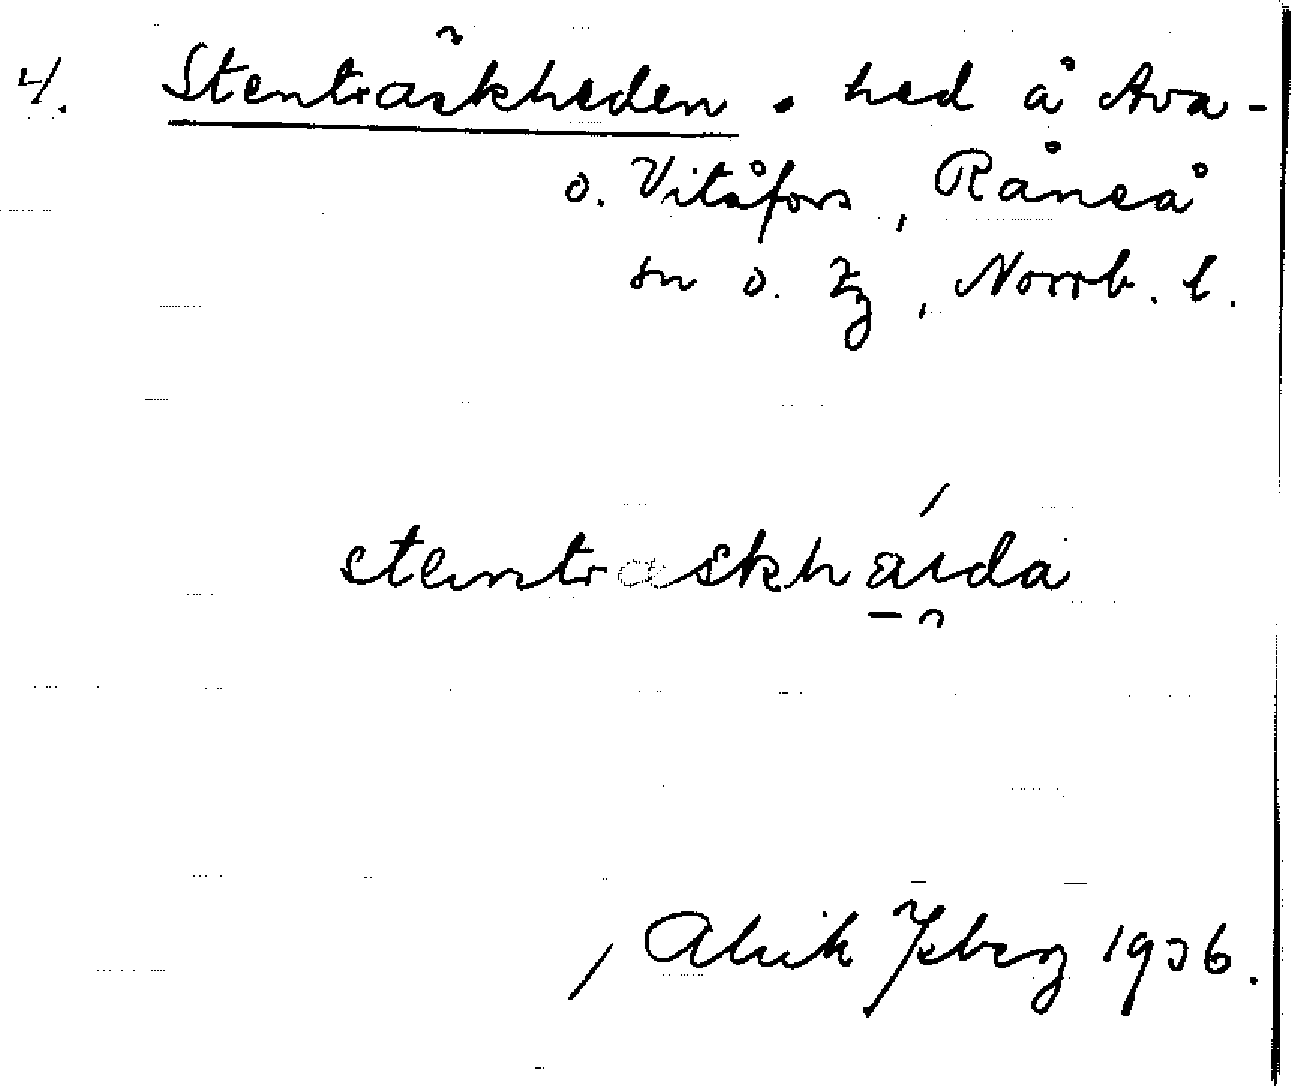 4. Stenträskheden. hed å Ava-
o. Vitåfors, Råneå
sn o. tg, Norrb. l.
stentræskhàida
1936.